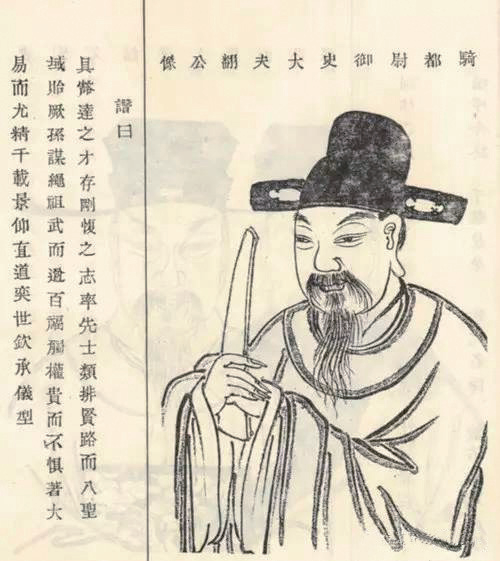 騎都尉御史大夫翻公像
讚曰
具達之才存剛愎之志率先士類排賢路而入聖
域貽厥孫謀繩祖武而遒百福觸權貴而不懼著大
易而尤精千載景仰直道奕世欽承儀型